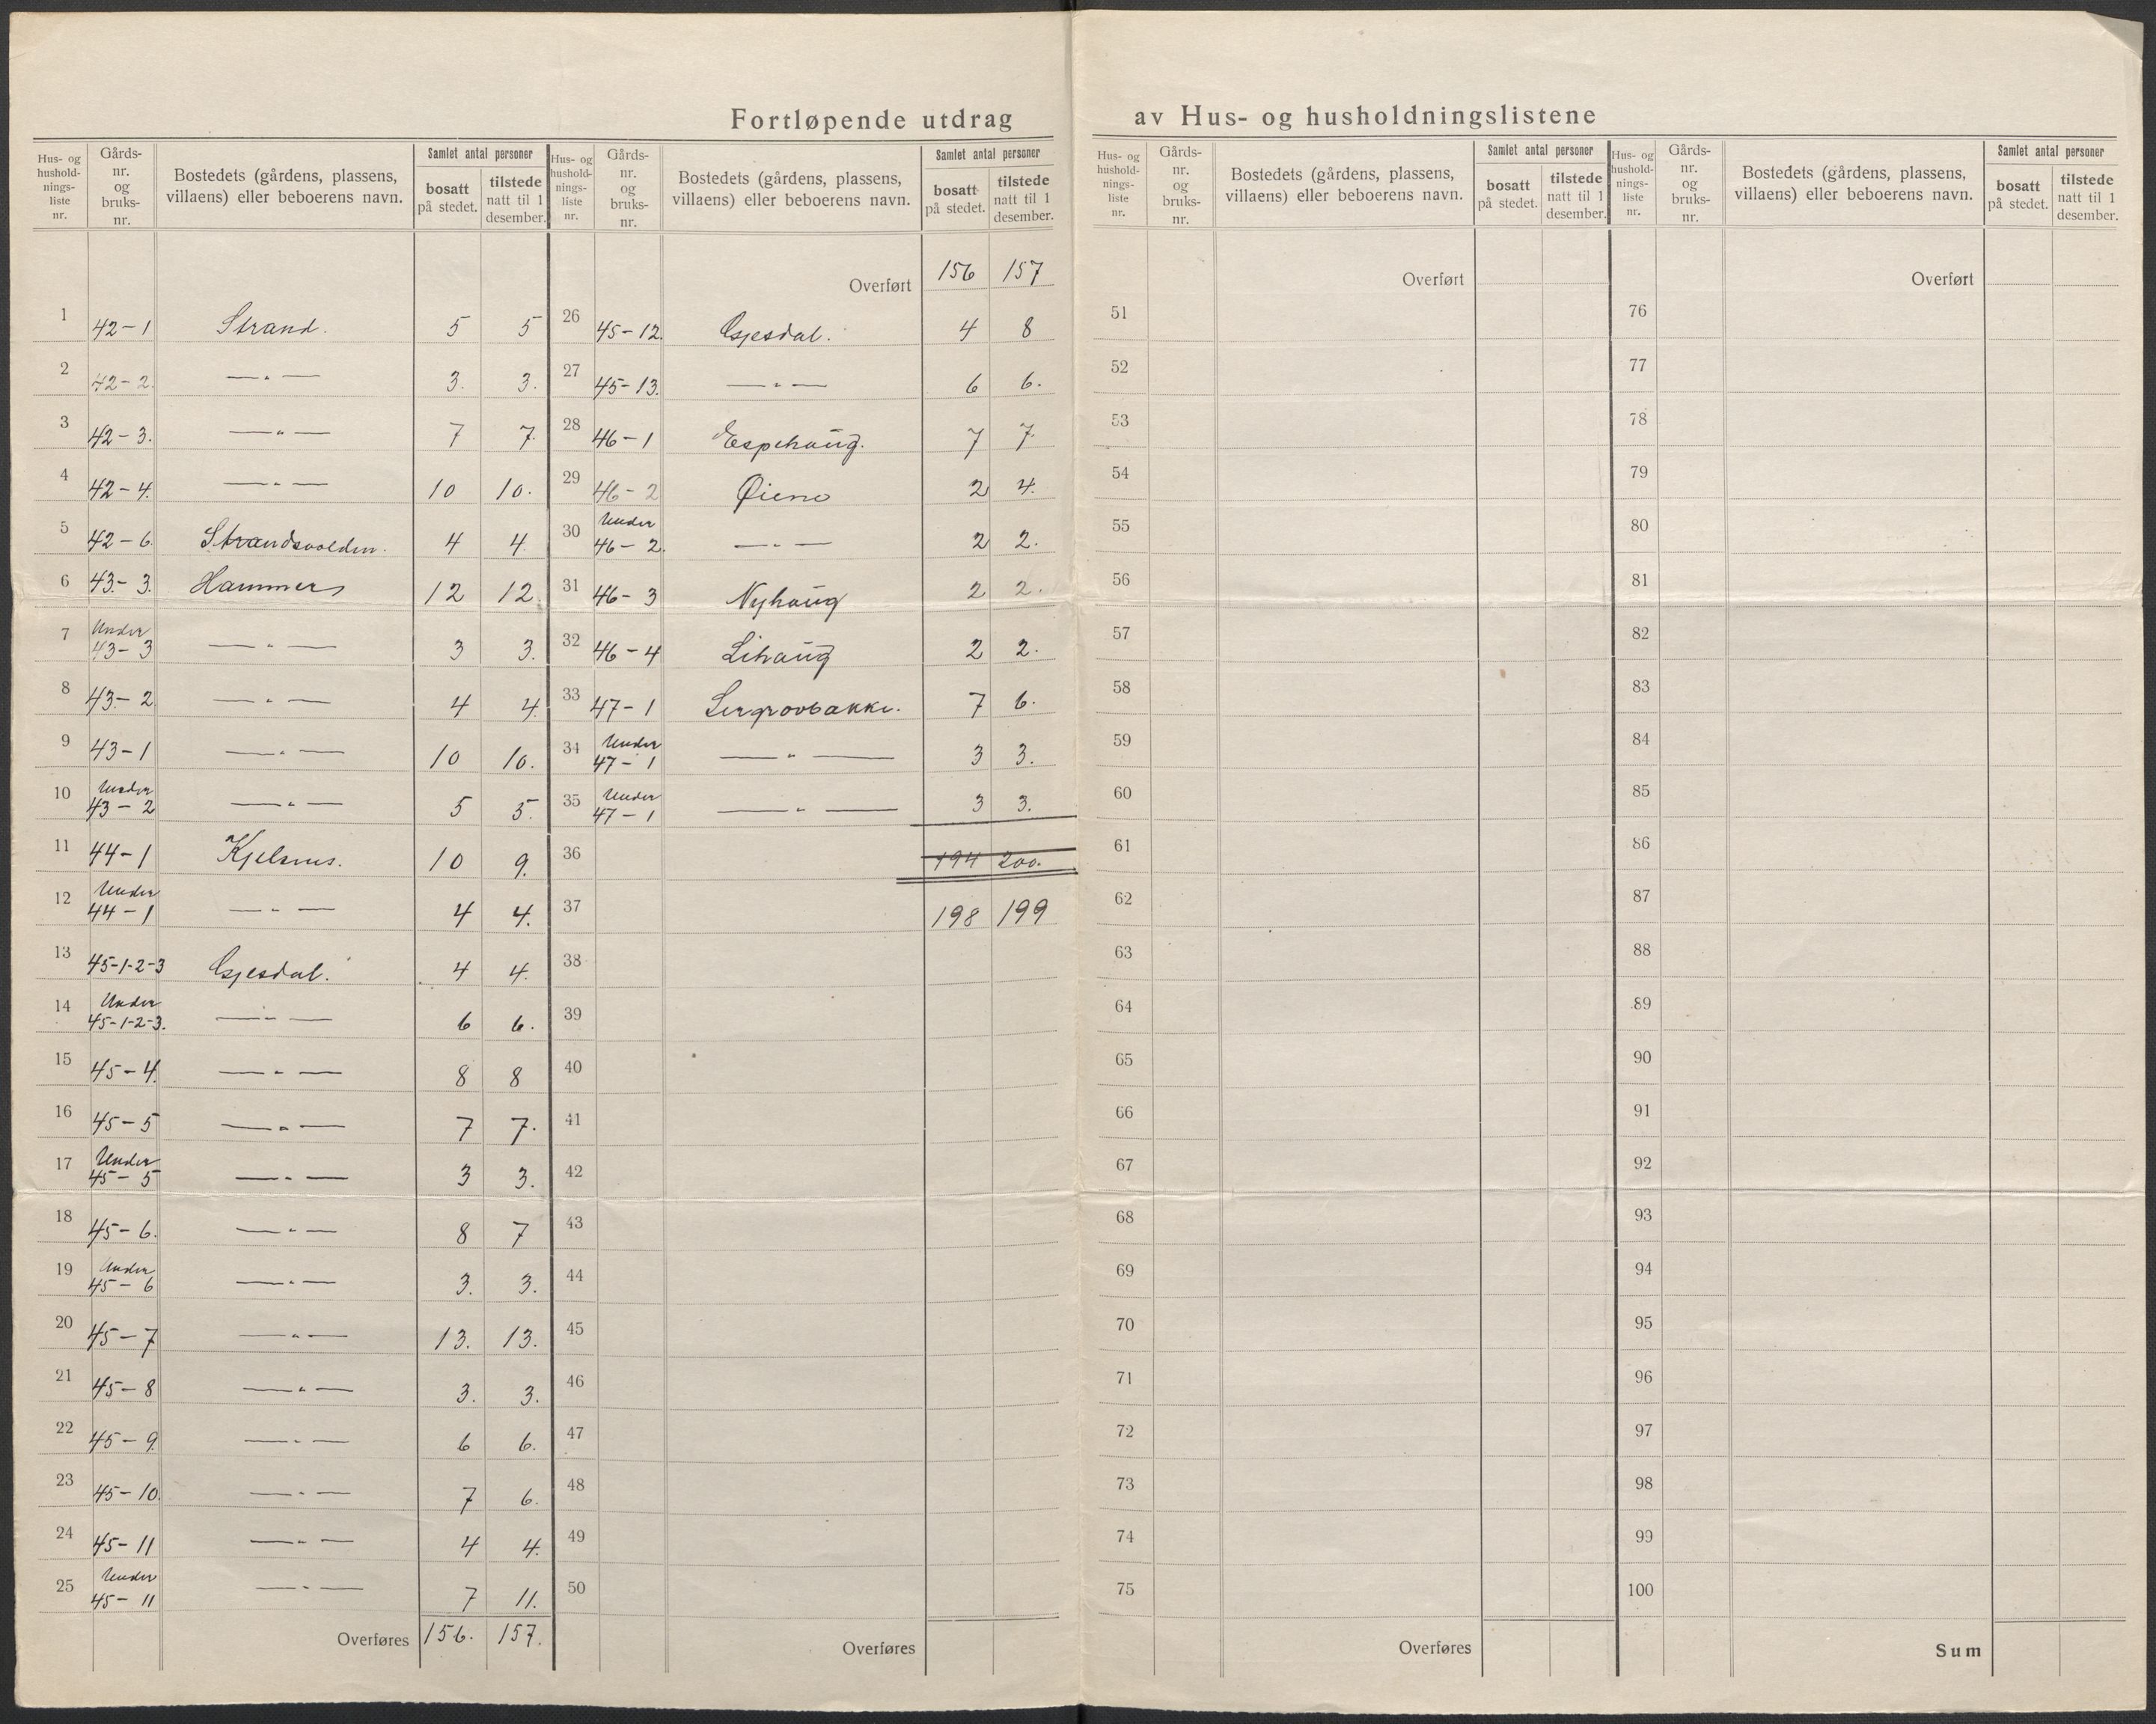 Fortløpende utdrag av Hus- og husholdningslistene
Hus- og hushold-nings-liste nr. Gårds-nr. og bruks-nr. Bostedets (gårdens, plassens, villaens) eller beboerens navn. Samlet antal personer bosatt på stedet. tilstede natt til 1 desember.
1 42-1 Strand. 5 5
2 42-2. —"— 3. 3.
3 42-3. —"— 7 7.
4 42-4. —"— 10 10.
5 42-6. Strandsvolden. 4 4
6 43-3. Hammer 12 12
7 Under 43-3 —"— 3 3.
8 43-2 —"— 4 4
9 43-1 —"— 10 10.
10 Under 43-2 —"— 5 5.
11 44-1 Kjelsnes. 10 9.
12 Under 44-1 —"— 4 4.
13 45-1-2-3 Gjesdal. 4 4.
14 Under 45-1-2-3. —"— 6 6.
15 45-4. —"— 8 8
16 45-5 —"— 7 7.
17 Under 45-5 —"— 3 3.
18 45-6. —"— 8 7
19 Under 45-6 —"— 3. 3.
20 45-7 —"— 13. 13.
21 45-8 —"— 3. 3.
22 45-9. —"— 6 6.
23 45-10. —"— 7 6.
24 45-11 —"— 4 4.
25 Under 45-11 —"— 7 11.
Overføres 156. 157.
Hus- og hushold-nings-liste nr. Gårds-nr. og bruks-nr. Bostedets (gårdens, plassens, villaens) eller beboerens navn. Samlet antal personer bosatt på stedet. tilstede natt til 1 desember.
Overført 156 157
26 45-12. Gjesdal. 4 8
27 45-13. —"— 6 6.
28 46-1 Espehaug. 7 7.
29 46-2 Øiene 2 4.
30 Under 46-2. —"— 2 2.
31 46-3 Nyhaug 2 2.
32 46-4 Lihaug 2 2.
33 47-1 7 6.
34 Under 47-1 —"— 3 3.
35 Under 47-1 —"— 3 3.
36 194 200.
37 198 199
38
39
40
41
42
43
44
45
46
47
48
49
50
Overføres
Hus- og hushold-nings-liste nr. Gårds-nr. og bruks-nr. Bostedets (gårdens, plassens, villaens) eller beboerens navn. Samlet antal personer bosatt på stedet. tilstede natt til 1 desember.
Overført
51
52
53
54
55
56
57
58
59
60
61
62
63
64
65
66
67
68
69
70
71
72
73
74
75
Overføres
Hus- og hushold-nings-liste nr. Gårds-nr. og bruks-nr. Bostedets (gårdens, plassens, villaens) eller beboerens navn. Samlet antal personer bosatt på stedet. tilstede natt til 1 desember.
Overført
76
77
78
79
80
81
82
83
84
85
86
87
88
89
90
91
92
93
94
95
96
97
98
99
100
Sum